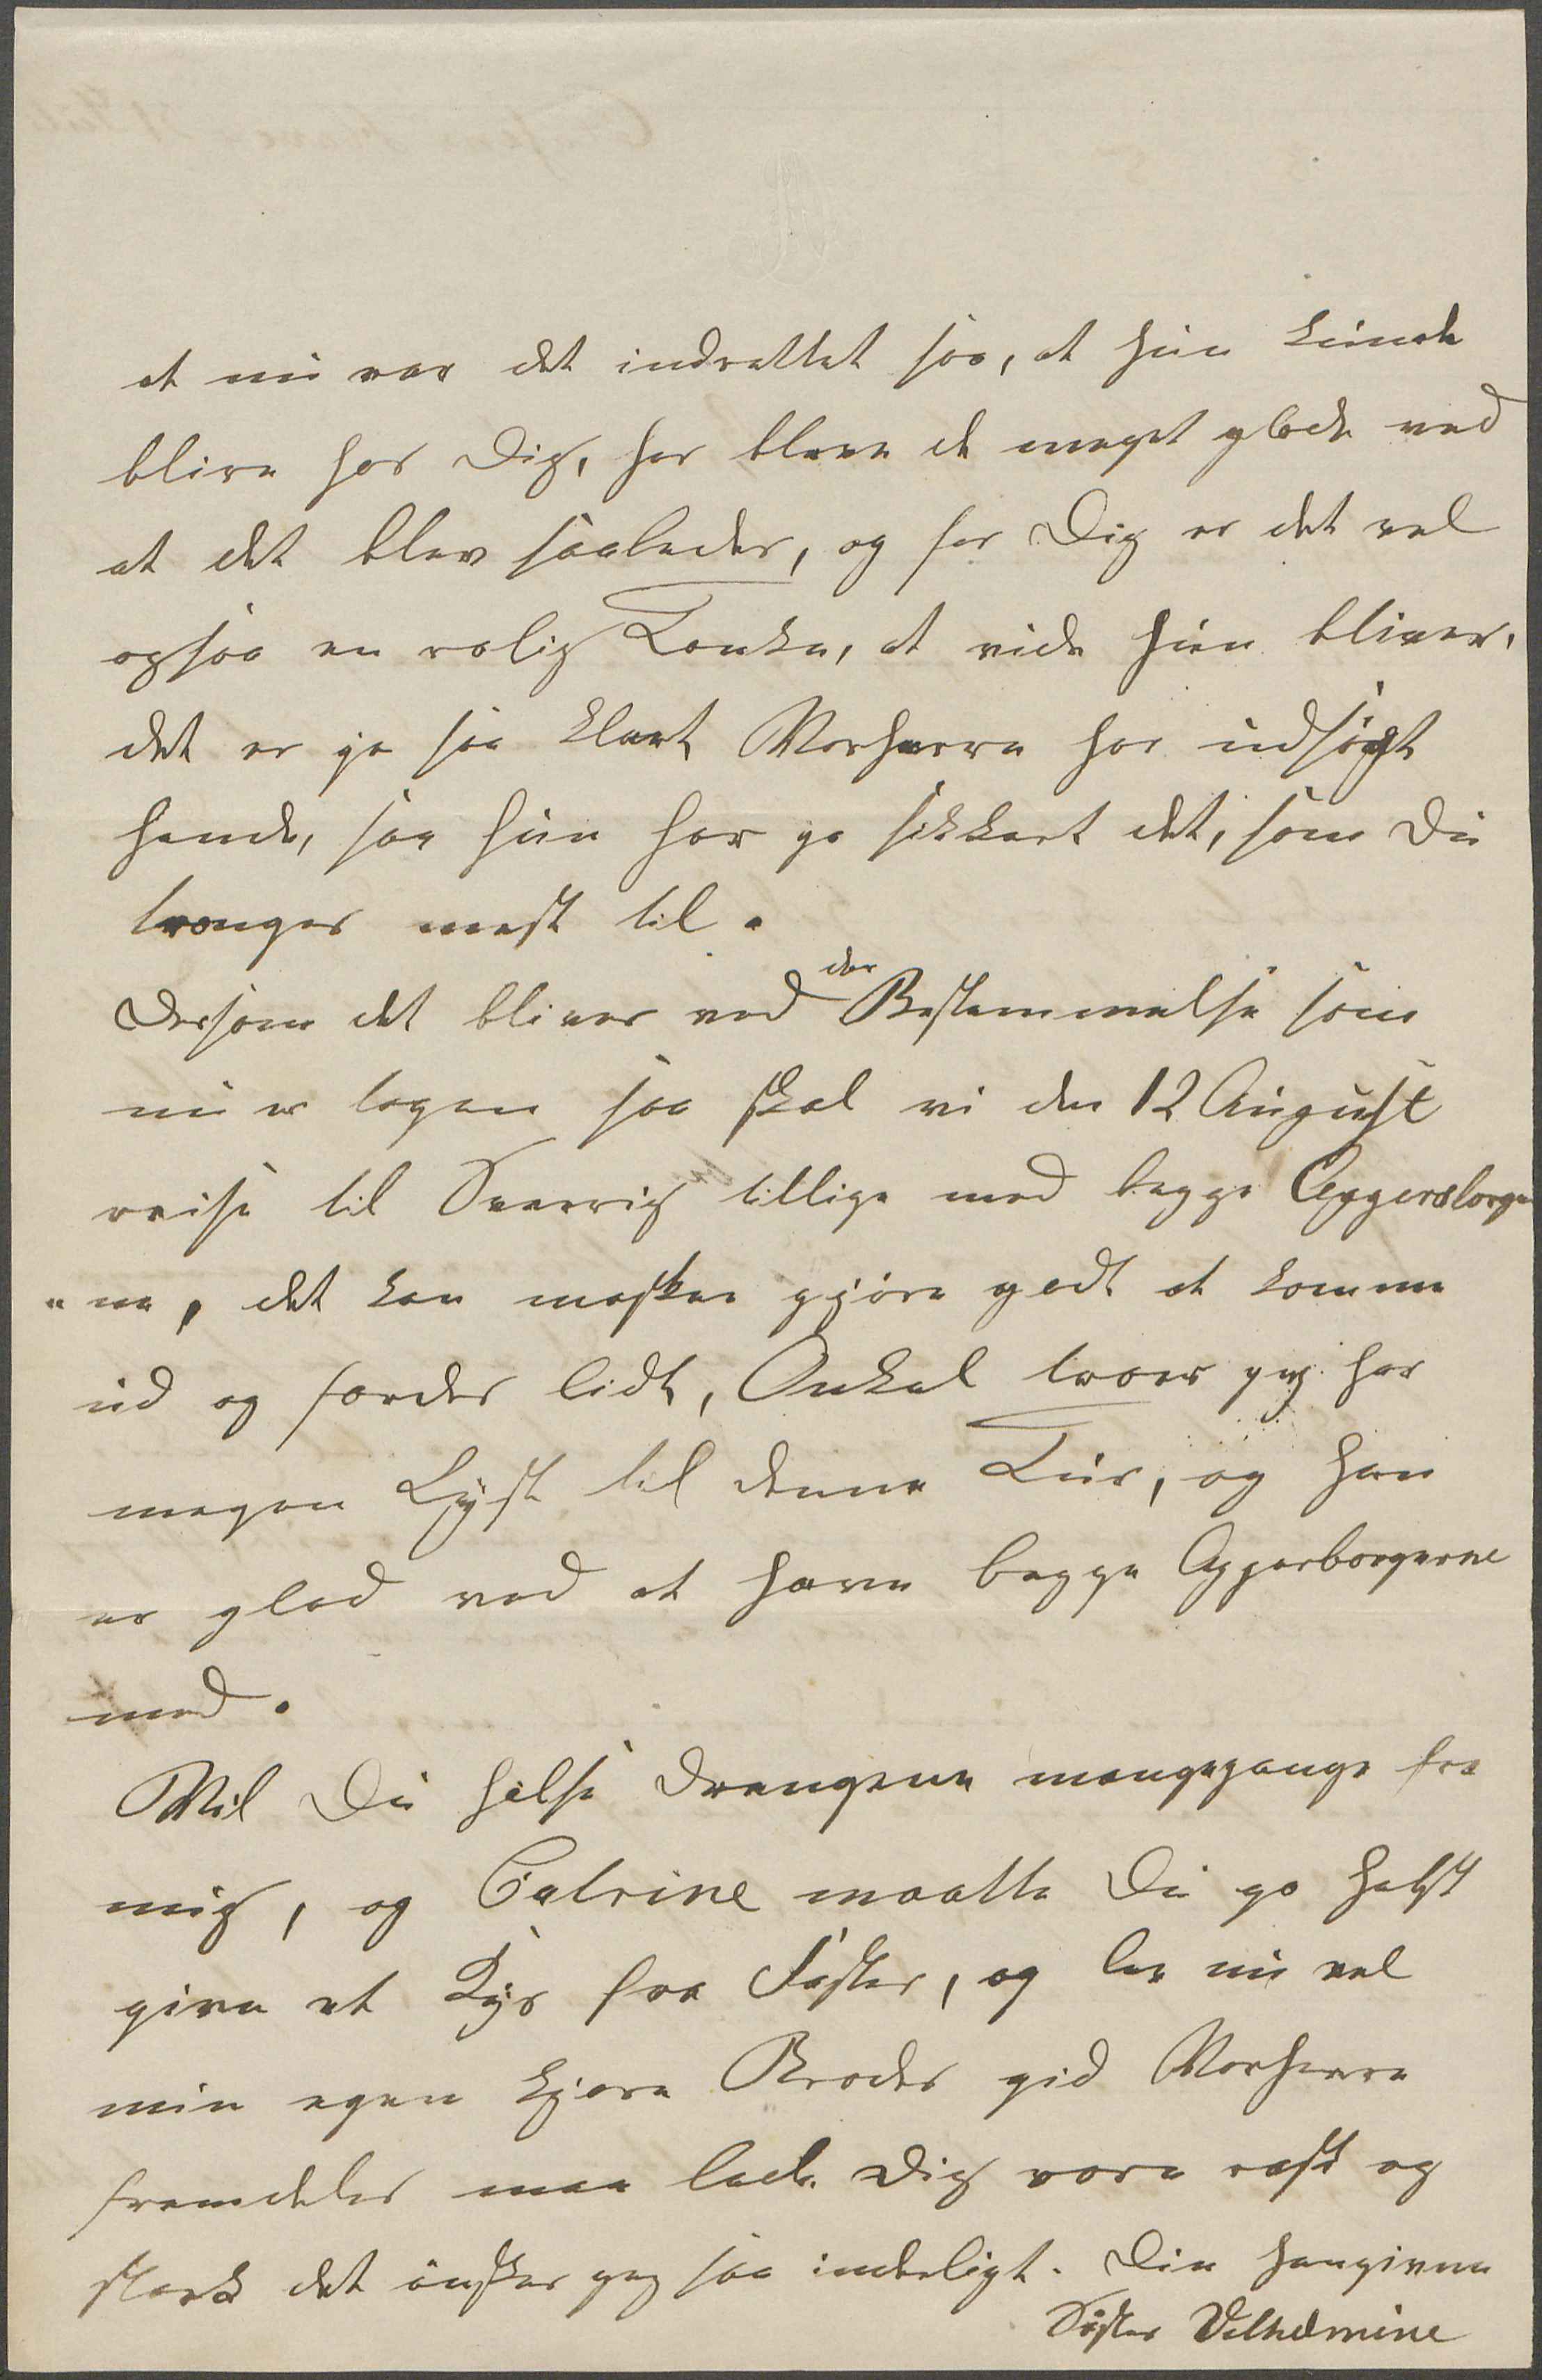 at nu var det indrettet saa, at hun kunde
blive hos Dig, her bleve de meget glade ved
at det blev saaledes, og for Dig er det vel
ogsaa en rolig Tanke, at vide hun bliver,
det er jo saa klart Vorherre har udsøgt
hende, saa hun har jo sikkert det, som Du
trænger mest til.
Dersom det bliver ved den Bestemmelse som
nu er tagen saa skal vi den 12 August
reise til Sverrig tillige med begge Aggersborger
"ne, det kan maske gjøre godt at komme
ud og færdes lidt, Onkel troer jeg har
megen Lyst til denne Tur, og han
er glad ved at have begge Aggerborgerne
med.
Vil Du hilse Drengene mangegange fra
mig, og Catrine maatte Du jo helst
give et Kys fra Faster, og lev nu vel
min egen kjære Broder gid Vorherre
fremdeles maa lade Dig være rask og
stærk det ønsker jeg saa inderligt. Din hengivne
Søster Vilhelmine